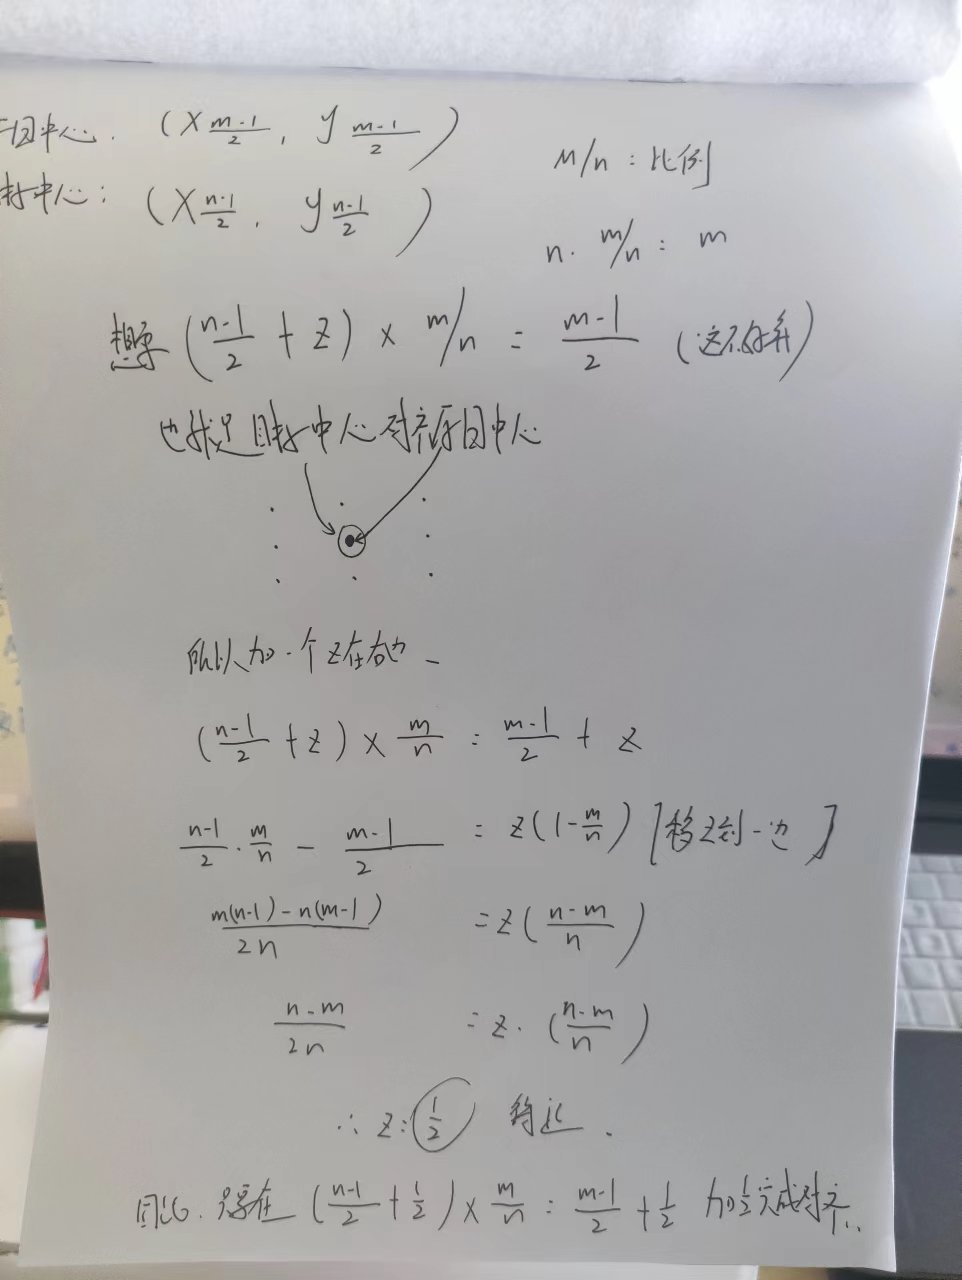 图中心. (X m-1/2, y m-1/2)
M/n : 比例
标中心: (X n-1/2, y n-1/2)
n · m/n = m
想要 (n-1/2 + z) × m/n = m-1/2 (这不好算)
也就是目标中心对齐原图中心
所以加一个z在右边
(n-1/2 + z) × m/n = m-1/2 + z
n-1/2 · m/n - m-1/2 = z(1-m/n) [移z到一边]
m(n-1)-n(m-1)/2n = z(n-m/n)
n-m/2n = z·(n-m/n)
∴ z = 1/2 得证.
因此. 只要在 (n-1/2 + 1/2) × m/n = m-1/2 + 1/2 加1/2完成对齐..